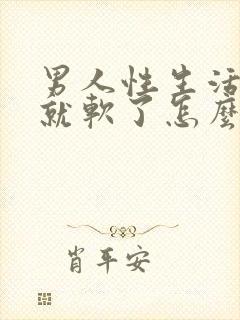 男人性生活
就軟了怎麼
肖平安